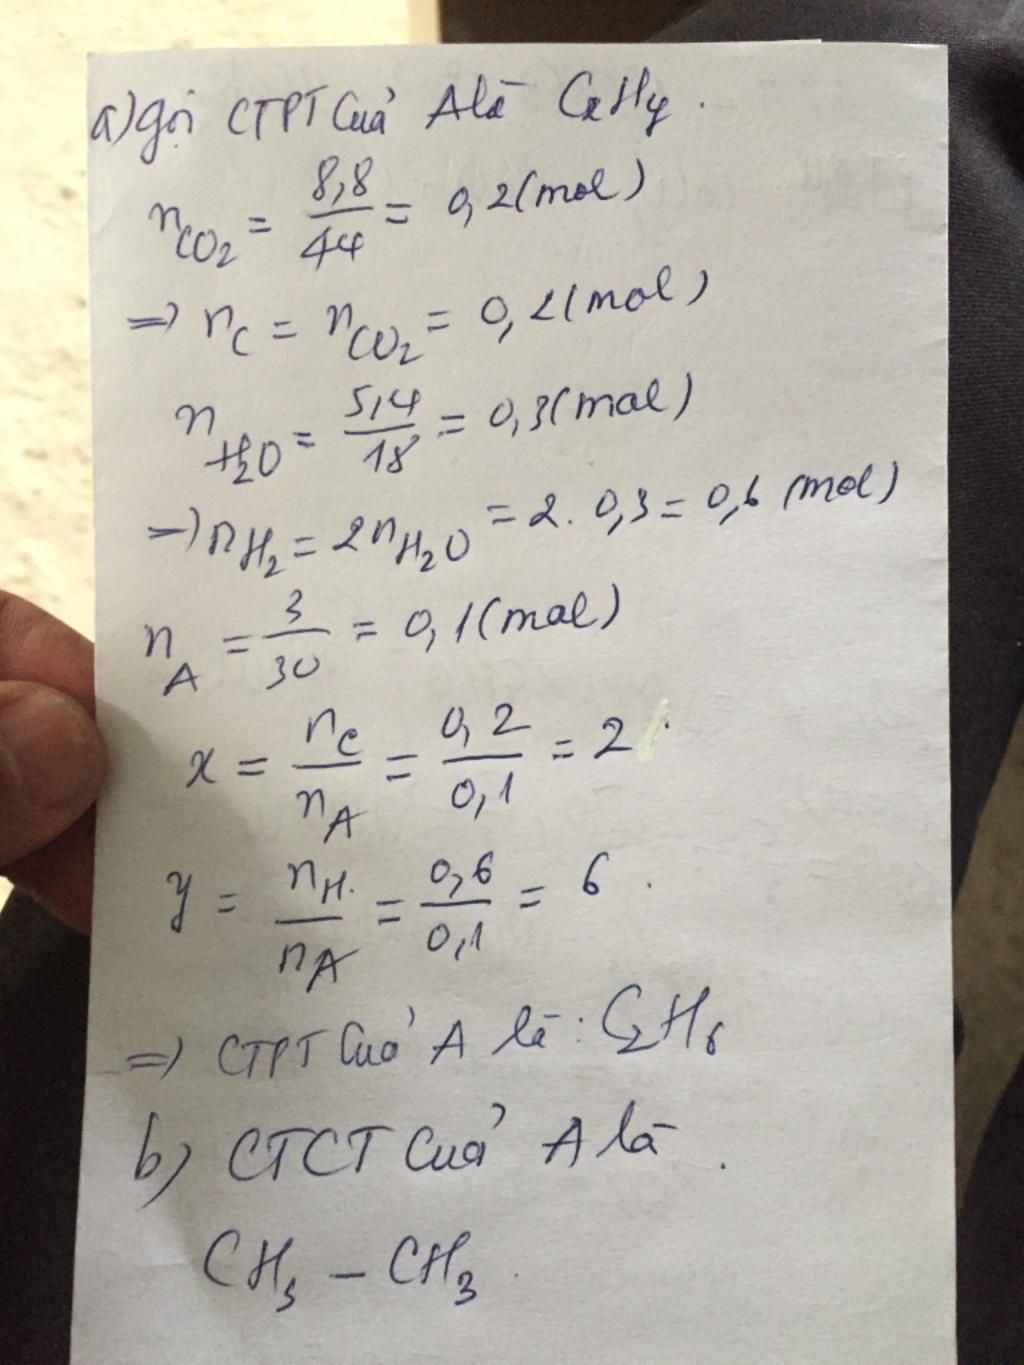 a) gọi CTPT Của A là CxHy.
nCO2 = 8,8/44 = 0,2 (mol)
=> nC = nCO2 = 0,2 (mol)
nH2O = 5,4/18 = 0,3 (mol)
=> nH2 = 2nH2O = 2. 0,3 = 0,6 (mol)
nA = 3/30 = 0,1 (mol)
x = nC/nA = 0,2/0,1 = 2
y = nH/nA = 0,6/0,1 = 6.
=> CTPT Của A là: C2H6
b) CTCT Của A là.
CH3 – CH3.